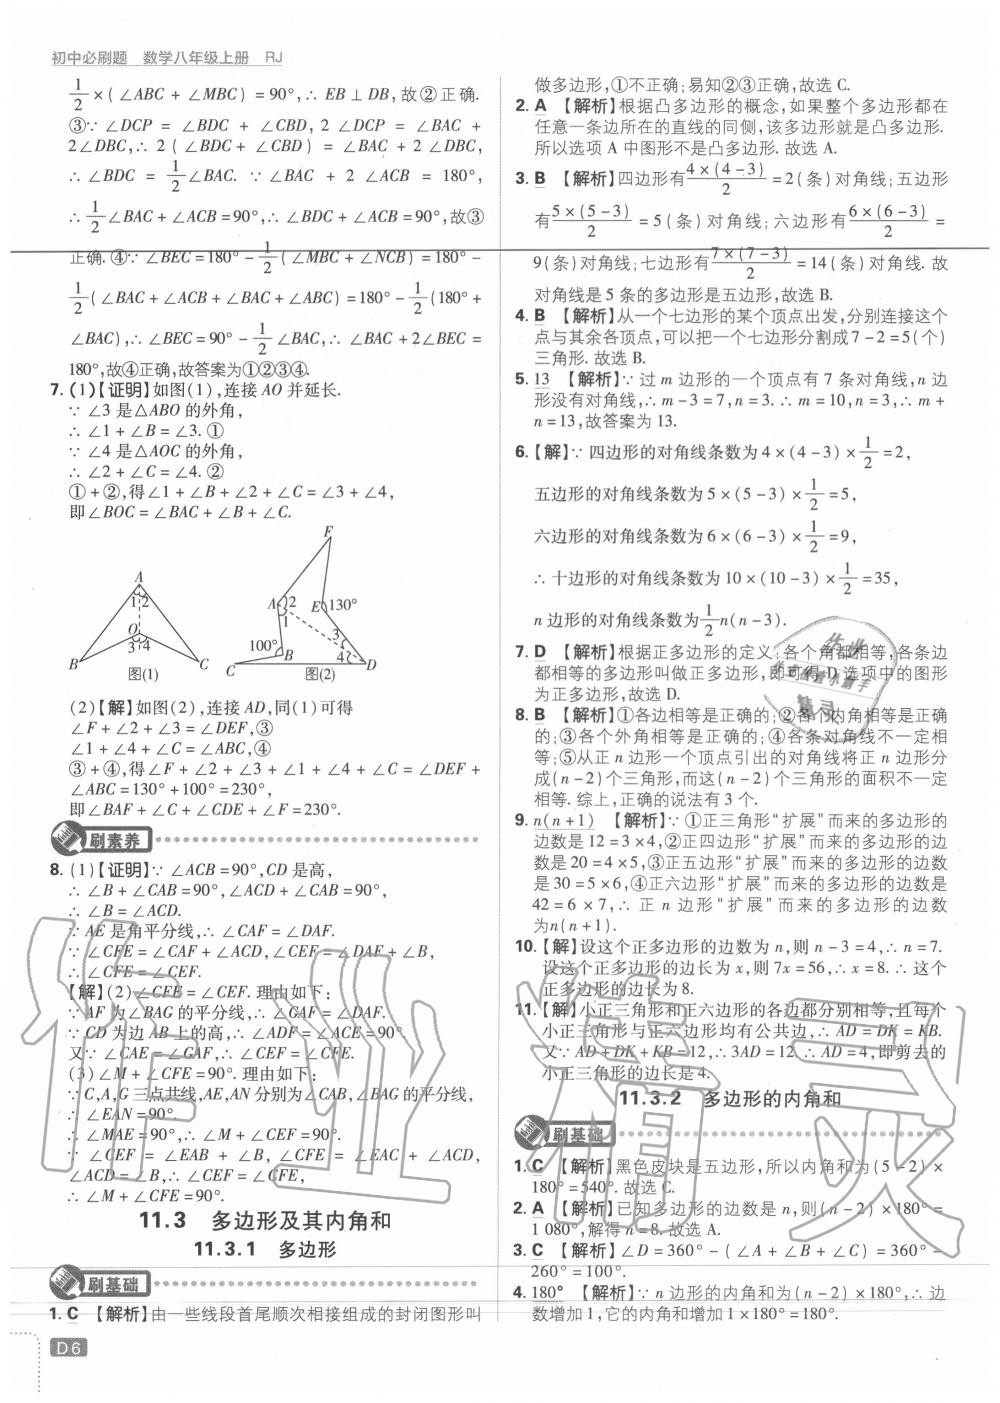 初中必刷题 数学八年级上册 RJ
1/2×(∠ABC+∠MBC)=90°,∴EB⊥DB,故②正确.
③∵∠DCP=∠BDC+∠CBD,2∠DCP=∠BAC+
2∠DBC,∴2(∠BDC+∠CBD)=∠BAC+2∠DBC,
∴∠BDC=1/2∠BAC.∵∠BAC+2∠ACB=180°,
∴1/2∠BAC+∠ACB=90°,∴∠BDC+∠ACB=90°,故③
正确.④∵∠BEC=180°-1/2(∠MBC+∠NCB)=180°-
1/2(∠BAC+∠ACB+∠BAC+∠ABC)=180°-1/2(180°+
∠BAC),∴∠BEC=90°-1/2∠BAC,∴∠BAC+2∠BEC=
180°,故④正确,故答案为①②③④.
7.(1)【证明】如图(1),连接AO并延长.
∵∠3是△ABO的外角,
∴∠1+∠B=∠3.①
∵∠4是△AOC的外角,
∴∠2+∠C=∠4.②
①+②,得∠1+∠B+∠2+∠C=∠3+∠4,
即∠BOC=∠BAC+∠B+∠C.
A
1 2
O
3 4
B C
图(1)
F
A 2
1
E 130°
3
4
100°
B
C D
图(2)
(2)【解】如图(2),连接AD,同(1)可得
∠F+∠2+∠3=∠DEF,③
∠1+∠4+∠C=∠ABC,④
③+④,得∠F+∠2+∠3+∠1+∠4+∠C=∠DEF+
∠ABC=130°+100°=230°,
即∠BAF+∠C+∠CDE+∠F=230°.
刷素养
8.(1)【证明】∵∠ACB=90°,CD是高,
∴∠B+∠CAB=90°,∠ACD+∠CAB=90°,
∴∠B=∠ACD.
∵AE是角平分线,∴∠CAF=∠DAF.
∵∠CFE=∠CAF+∠ACD,∠CEF=∠DAF+∠B,
∴∠CFE=∠CEF.
【解】(2)∠CFE=∠CEF.理由如下:
∵AF为∠BAG的平分线,∴∠GAF=∠DAF.
∵CD为边AB上的高,∴∠ADF=∠ACE=90°.
又∵∠CAE=∠GAF,∴∠CEF=∠CFE.
(3)∠M+∠CFE=90°.理由如下:
∵C,A,G三点共线,AE,AN分别为∠CAB,∠BAG的平分线,
∴∠EAN=90°.
∴∠MAE=90°,∴∠M+∠CEF=90°.
∵∠CEF=∠EAB+∠B,∠CFE=∠EAC+∠ACD,
∠ACD=∠B,∴∠CEF=∠CFE,
∴∠M+∠CFE=90°.
11.3 多边形及其内角和
11.3.1 多边形
刷基础
1.C 【解析】由一些线段首尾顺次相接组成的封闭图形叫
D6
做多边形,①不正确;易知②③正确,故选C.
2.A 【解析】根据凸多边形的概念,如果整个多边形都在
任意一条边所在的直线的同侧,该多边形就是凸多边形.
所以选项A中图形不是凸多边形.故选A.
3.B 【解析】四边形有4×(4-3)/2=2(条)对角线;五边形
有5×(5-3)/2=5(条)对角线;六边形有6×(6-3)/2=
9(条)对角线;七边形有7×(7-3)/2=14(条)对角线.故
对角线是5条的多边形是五边形,故选B.
4.B 【解析】从一个七边形的某个顶点出发,分别连接这个
点与其余各顶点,可以把一个七边形分割成7-2=5(个)
三角形.故选B.
5.13 【解析】∵过m边形的一个顶点有7条对角线,n边
形没有对角线,∴m-3=7,n=3.∴m=10,n=3,∴m+
n=13,故答案为13.
6.【解】∵四边形的对角线条数为4×(4-3)×1/2=2,
五边形的对角线条数为5×(5-3)×1/2=5,
六边形的对角线条数为6×(6-3)×1/2=9,
∴十边形的对角线条数为10×(10-3)×1/2=35,
n边形的对角线条数为1/2n(n-3).
7.D 【解析】根据正多边形的定义:各个角都相等,各条边
都相等的多边形叫做正多边形,即可得,D选项中的图形
为正多边形,故选D.
8.B 【解析】①各边相等是正确的;②各个内角相等是正确
的;③各个外角相等是正确的;④各条对角线不一定相
等;⑤从正n边形一个顶点引出的对角线将正n边形分
成(n-2)个三角形,而这(n-2)个三角形的面积不一定
相等.综上,正确的说法有3个.
9.n(n+1) 【解析】∵①正三角形“扩展”而来的多边形的
边数是12=3×4,②正四边形“扩展”而来的多边形的边
数是20=4×5,③正五边形“扩展”而来的多边形的边数
是30=5×6,④正六边形“扩展”而来的多边形的边数是
42=6×7,∴正n边形“扩展”而来的多边形的边数
为n(n+1).
10.【解】设这个正多边形的边数为n,则n-3=4,∴n=7.
设这个正多边形的边长为x,则7x=56,∴x=8.∴这个
正多边形的边长为8.
11.【解】小正三角形和正六边形的各边都分别相等,且每个
小正三角形与正六边形均有公共边,∴AD=DK=KB.
又∵AD+DK+KB=12,∴3AD=12.∴AD=4,即剪去的
小正三角形的边长是4.
11.3.2 多边形的内角和
刷基础
1.C 【解析】黑色皮块是五边形,所以内角和为(5-2)×
180°=540°.故选C.
2.A 【解析】已知多边形的边数是n,则(n-2)×180°=
1 080°,解得n=8.故选A.
3.C 【解析】∠D=360°-(∠A+∠B+∠C)=360°-
260°=100°.
4.180° 【解析】∵n边形的内角和为(n-2)×180°,∴边
数增加1,它的内角和增加1×180°=180°.
作业精灵